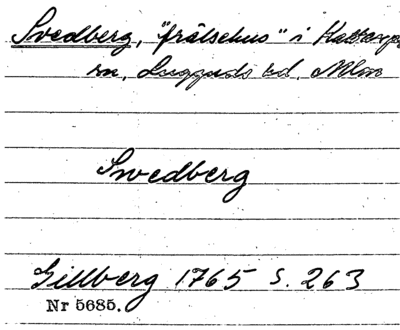 Svedberg, "frälsehus" i Kattarps
sn, Luggude hd, Mlm
Swedberg
Gillberg 1765 s. 263
Nr 5685.